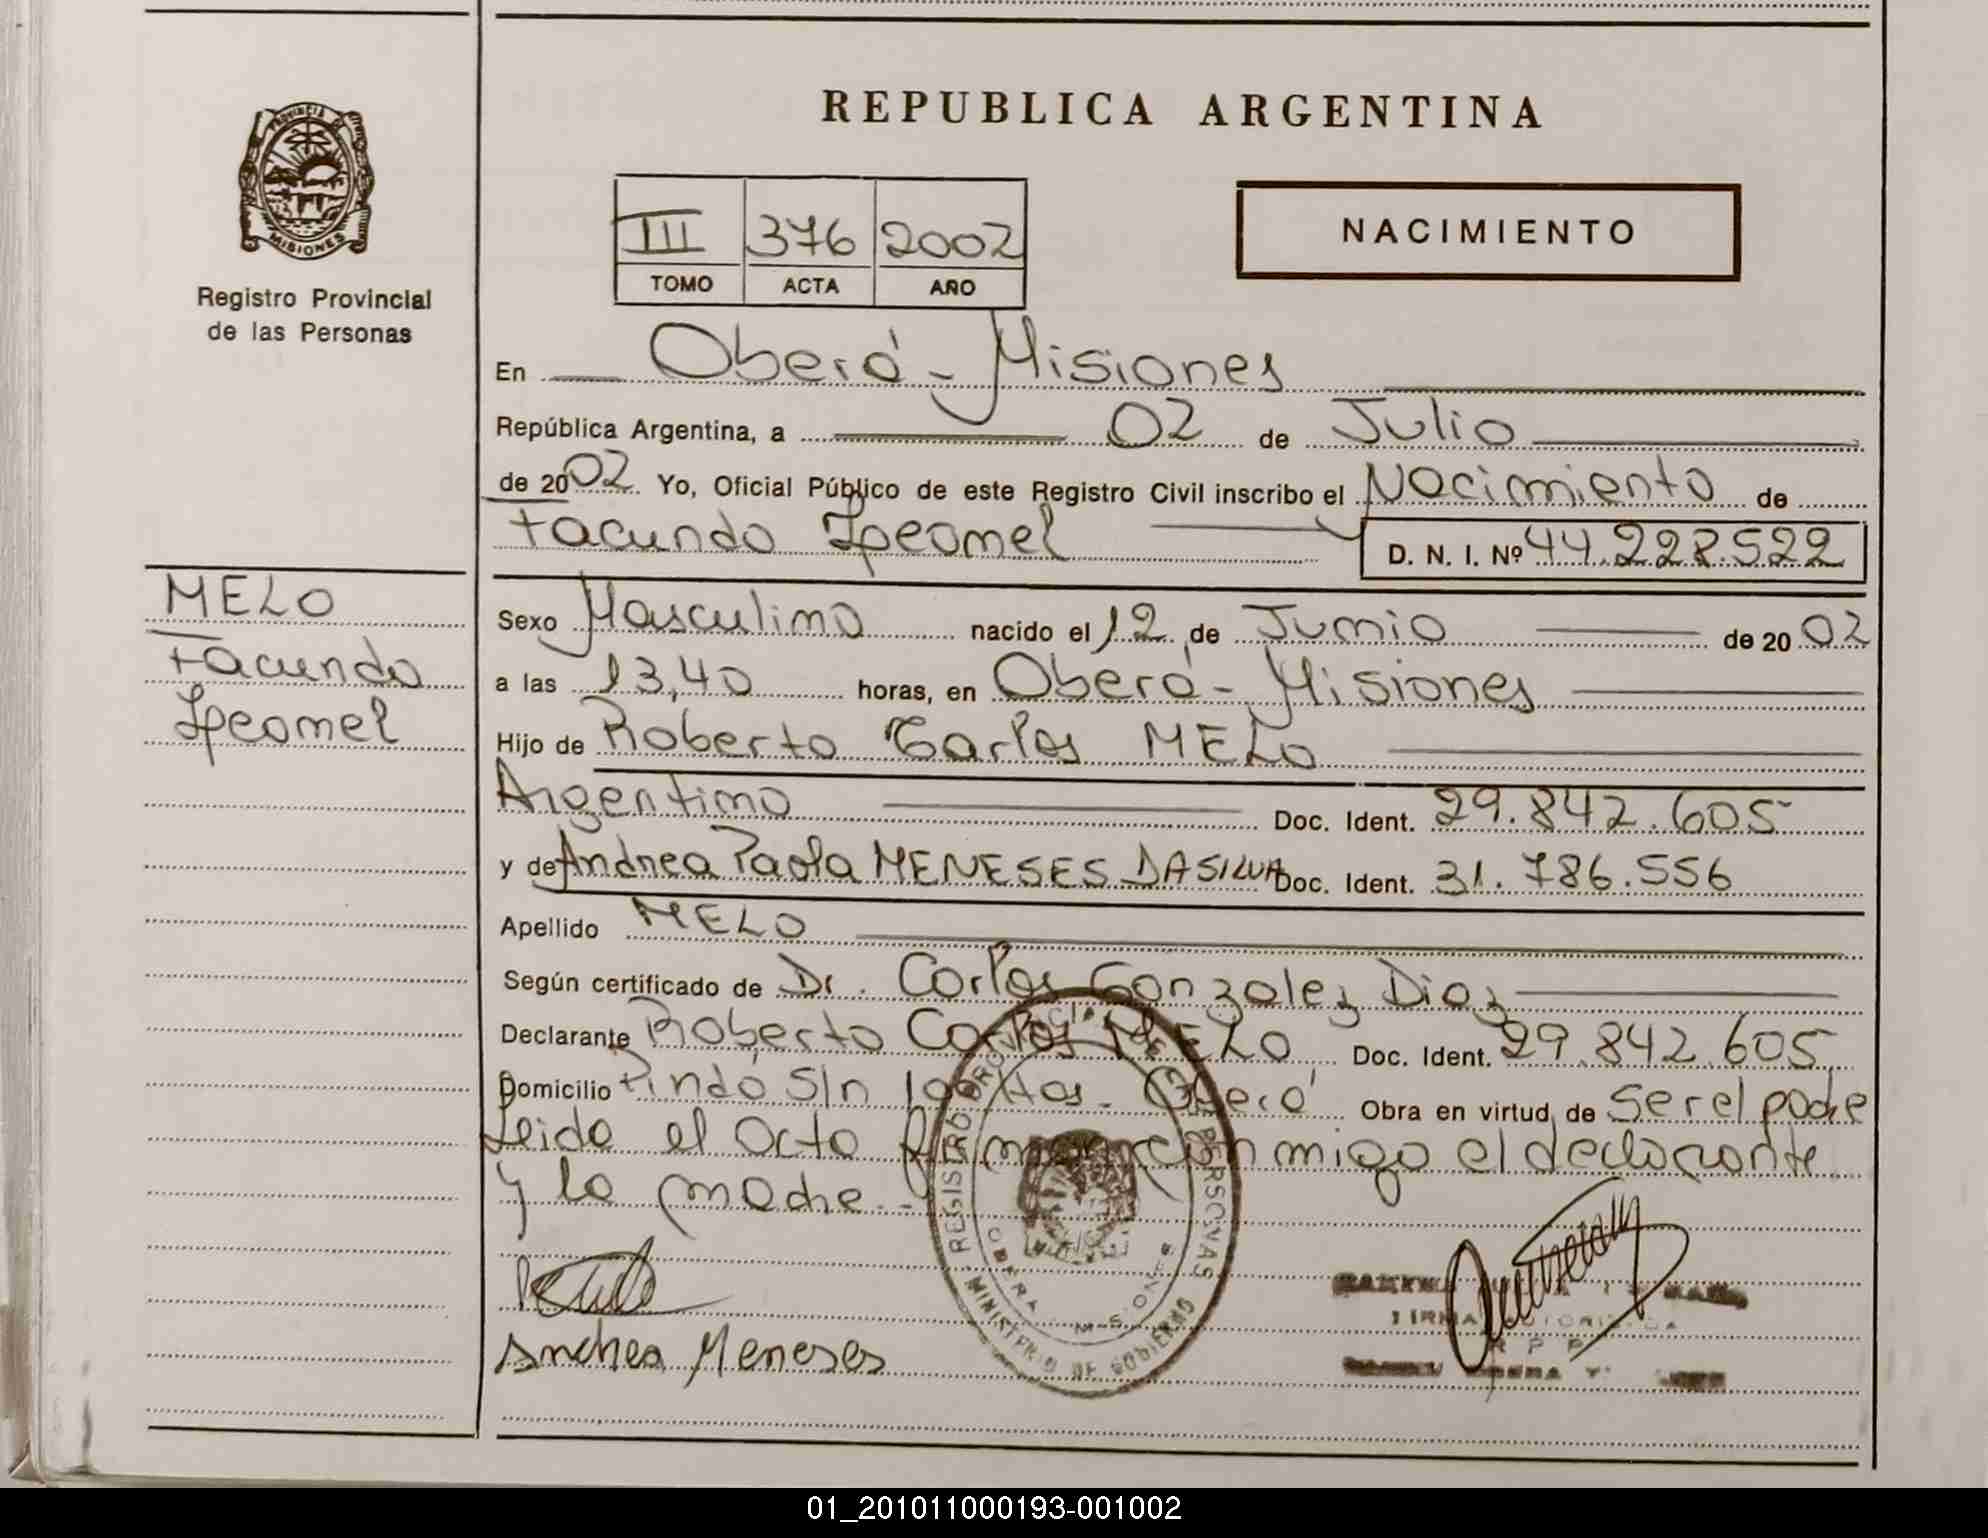 REPUBLICA ARGENTINA
PROVINCIA DE
MISIONES
Registro Provincial
de las Personas
III 376 2002
TOMO ACTA AÑO
NACIMIENTO
En Oberá - Misiones
República Argentina, a 02 de Julio
de 2002 Yo, Oficial Público de este Registro Civil inscribo el Nacimiento de
Facundo Ipeomel
D. N. I. Nº 44.228.522
MELO
Facundo
Ipeomel
Sexo Masculino nacido el 12 de Junio de 2002
a las 13,40 horas, en Oberá - Misiones
Hijo de Roberto Carlos MELO
Argentino Doc. Ident. 29.842.605
y de Andrea Paola MENESES DASILVA Doc. Ident. 31.786.556
Apellido MELO
Según certificado de Dr. Carlos Gonzalez Diaz
Declarante Roberto Carlos MELO Doc. Ident. 29.842.605
Domicilio Pindó S/n 100 Mts. Oberá Obra en virtud de ser el padre
Leida el Acta firman conmigo el declarante
y la madre.-
REGISTRO PROVINCIAL DE LAS PERSONAS
OBERA MISIONES
MINISTERIO DE GOBIERNO
Andrea Meneses
FIRMA AUTORIZADA
R P P
01_201011000193-001002